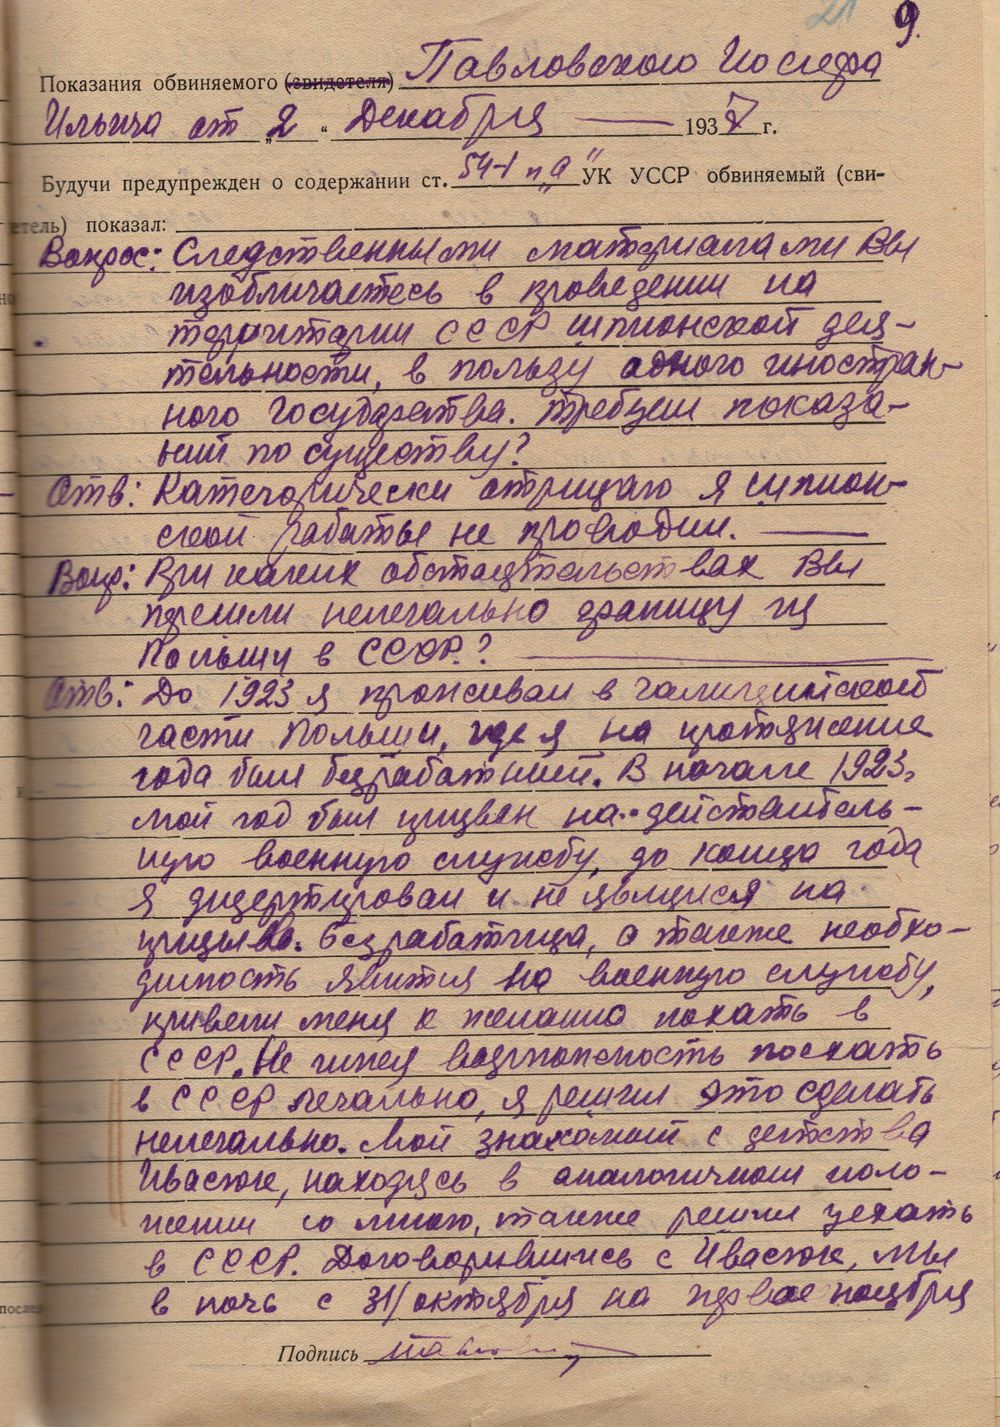 21 9.
Показания обвиняемого (свидетеля) Павловского Иосифа
Ильича от „2“ Декабря 1937 г.
Будучи предупрежден о содержании ст. 54-1 п „а“ УК УССР обвиняемый (сви-
етель) показал:
Вопрос: Следственными материалами Вы
изобличаетесь в проведении на
территории СССР шпионской дея-
тельности, в пользу одного иностран-
ного государства. Требуем показа-
ний по существу?
Отв: Категорически отрицаю я шпион-
ской работы не проводил.
Вопр: При каких обстоятельствах Вы
перешли нелегально границу из
Польши в СССР.?
Отв: До 1923 я проживал в галицийской
части Польши, где я на протяжение
года был безработный. В начале 1923.
мой год был призван на действитель-
ную военную службу, до конца года
я дизертировал и не явился на
призыв. Безработица, а также необхо-
димость явится на военную службу,
привели меня к желанию поехать в
СССР. Не имея возможность поехать
в СССР легально, я решил это сделать
нелегально. Мой знакомый с детства
Ивасюк, находясь в аналогичном поло-
жении со мною, также решил уехать
в СССР. Договорившись с Ивасюк, мы
в ночь с 31/ октября на первое ноября
Подпись